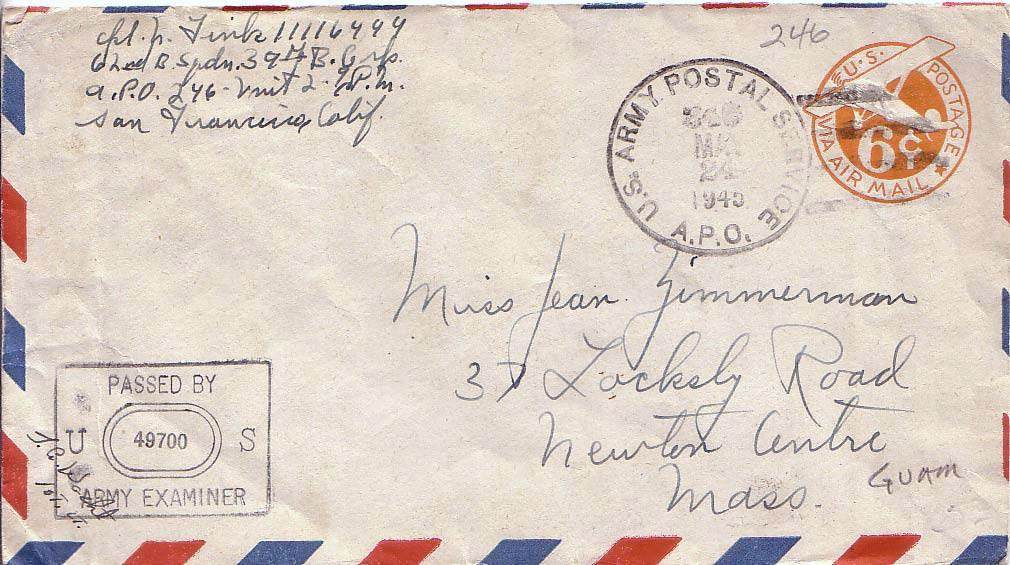 Cpl. N. Fink 11116444
62nd B. Sqdn. 39th B. Grp.
A.P.O. 246 - Unit 2 - P.M.
San Francisco, Calif.
246
U.S. POSTAGE
6¢
VIA AIR MAIL
U.S. ARMY POSTAL SERVICE
MAR
24
1945
A.P.O.
Miss Jean Zimmerman
37 Locksly Road
Newton Centre
Mass.
GUAM
PASSED BY
U 49700 S
ARMY EXAMINER